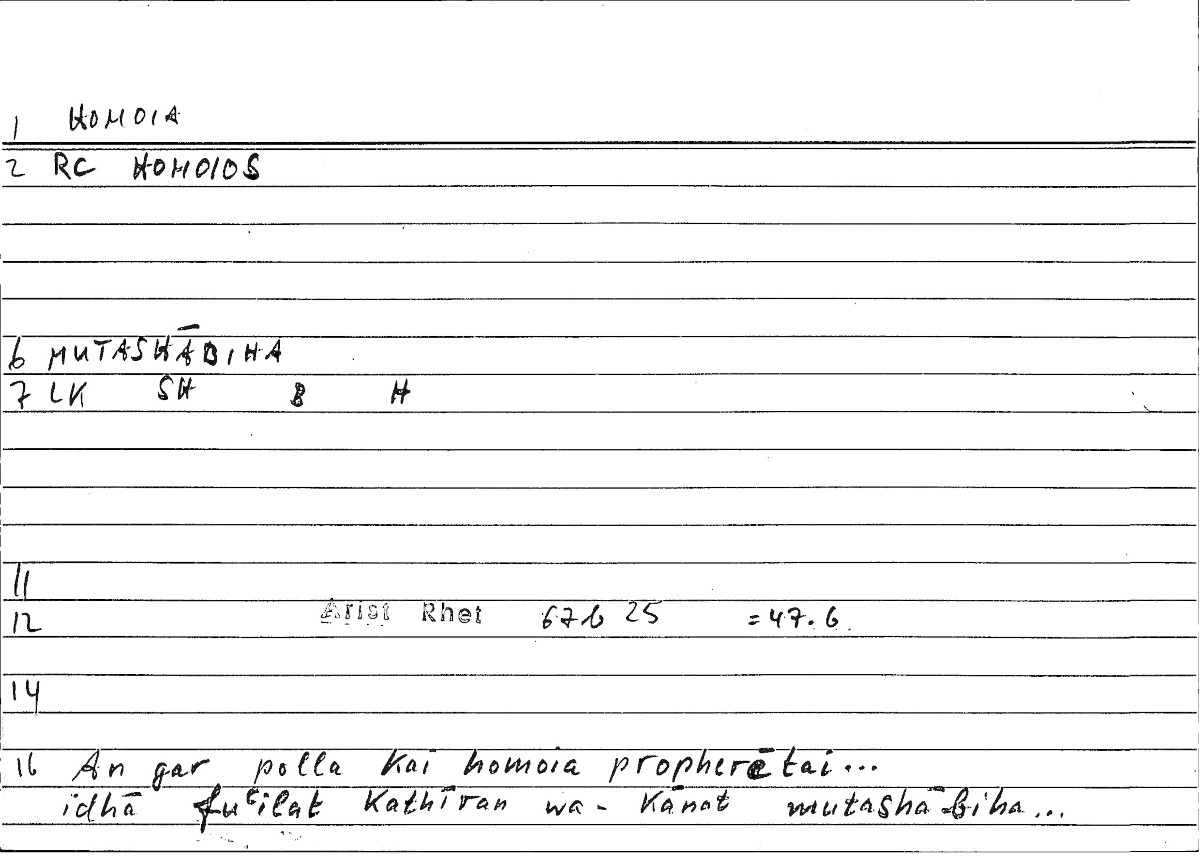 1 HOMOIA
2 RC HOMOIOS
6 MUTASHĀBIHA
7 LK SH B H
11
12 Arist Rhet 67b 25 =47.6
14
16 An gar polla kai homoia propherētai...
idhā fuʿilat kathīran wa-kānat mutashābiha...